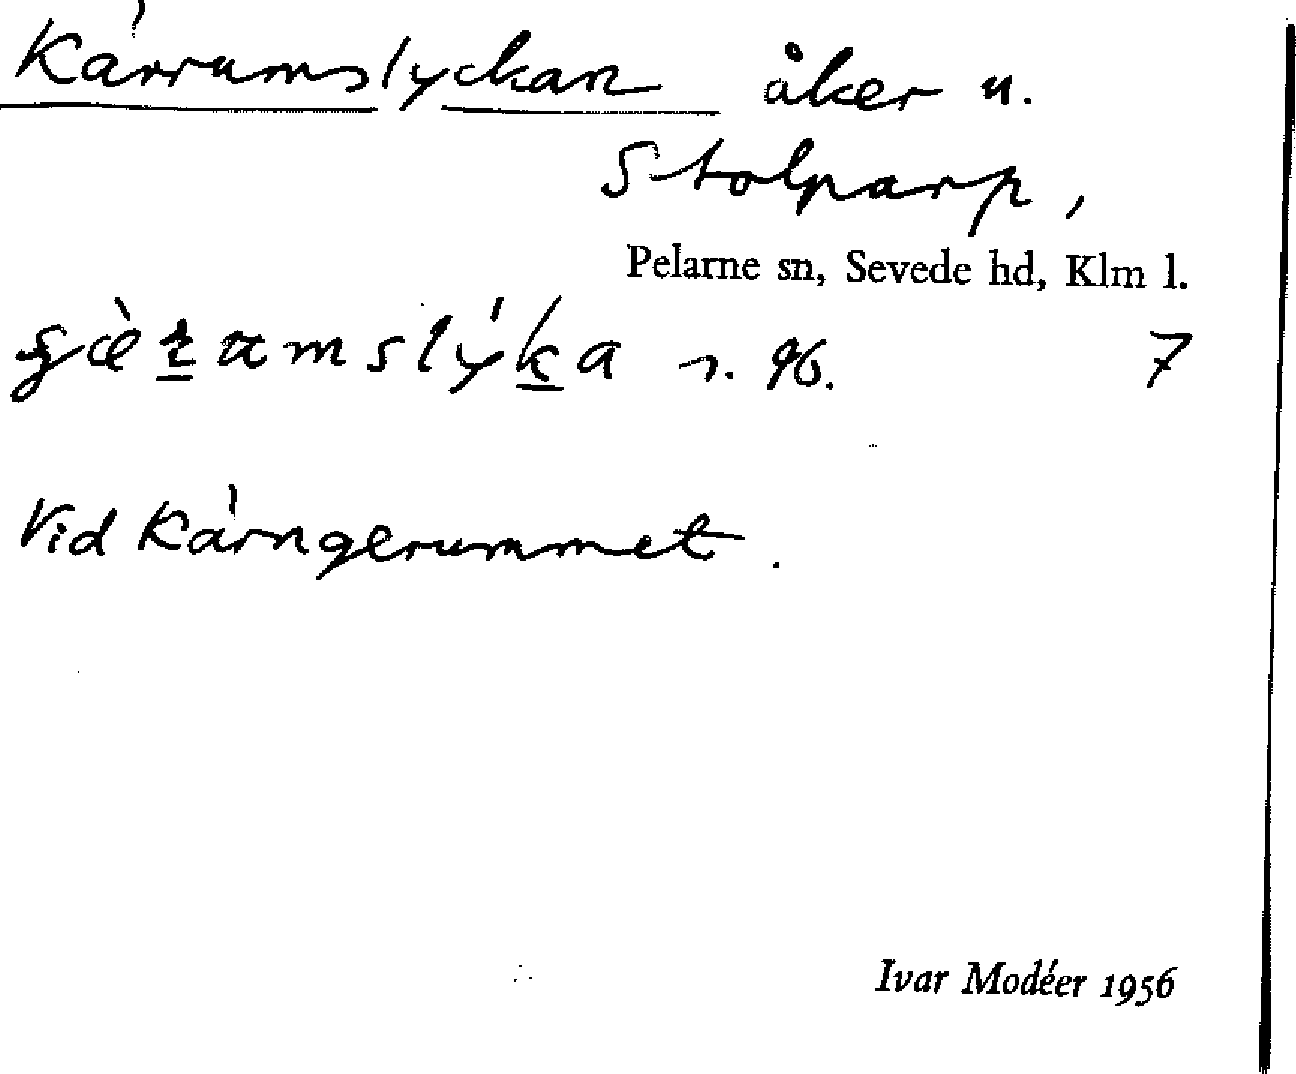 Kärrumslyckan åker u.
Stolparp,
Pelarne sn, Sevede hd, Klm l.
n. 96. 7
Vid Kärngerummet.
Ivar Modéer 1956